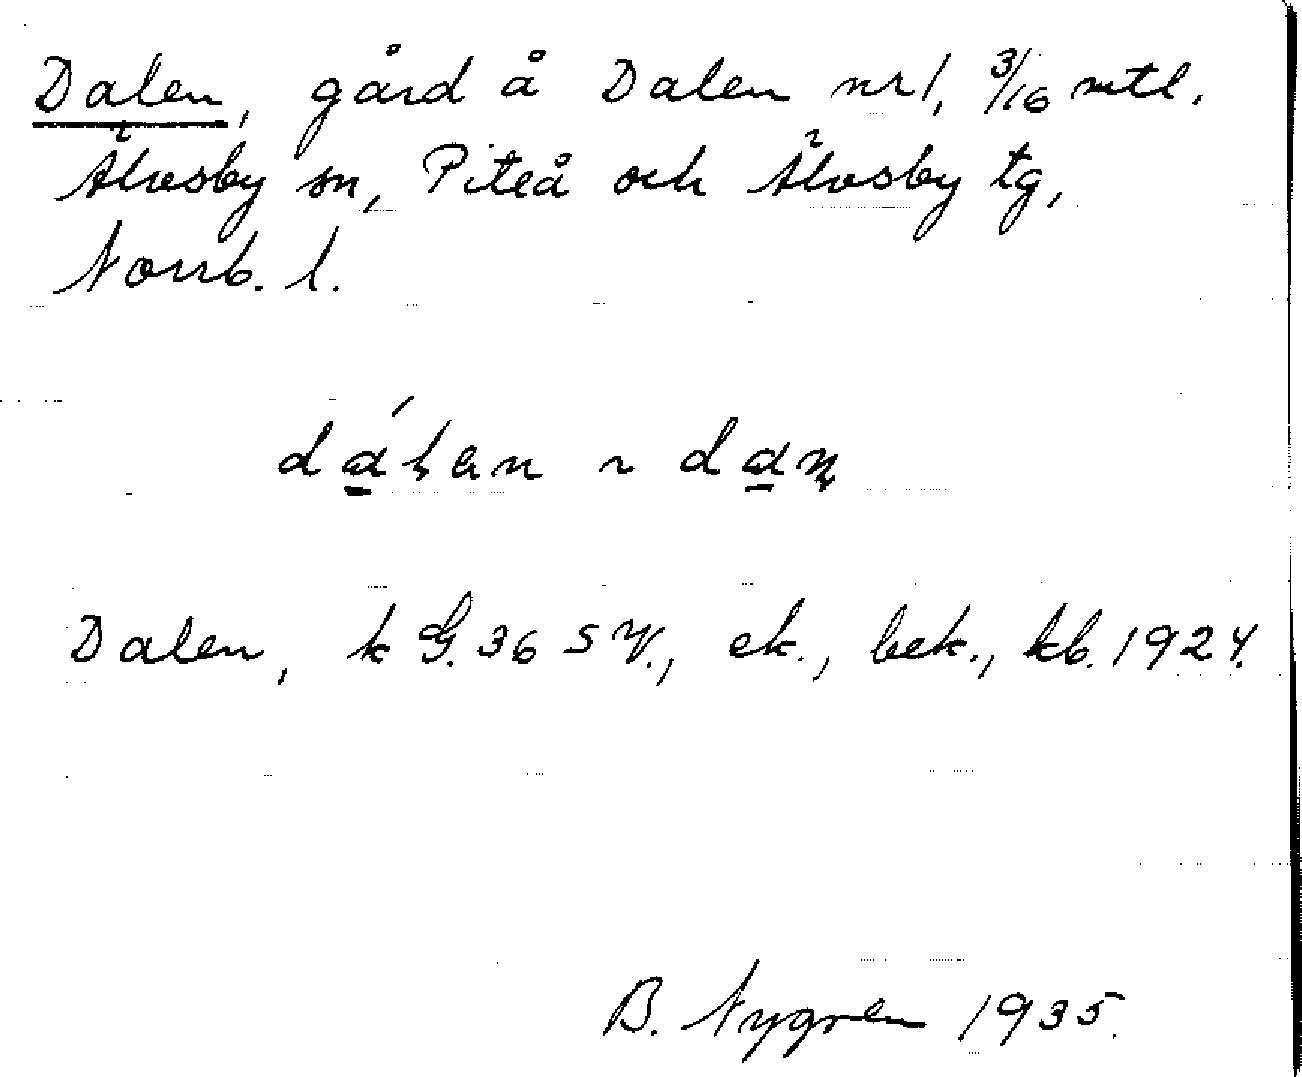 Dalen, gård å Dalen nr 1, 3/16 mtl.
Älvsby sn, Piteå och Älvsby tg,
Norrb. l.
dálan ~ dan
Dalen, k G. 36 SV., ek., bek., kb. 1924.
B. Nygren 1935.